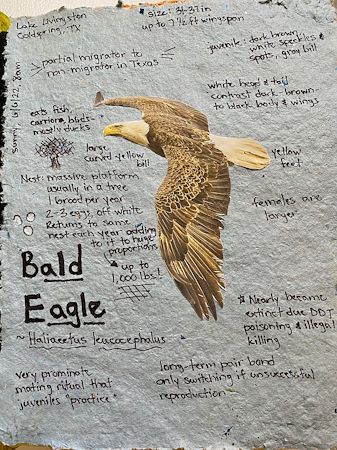 Lake Livingston
Coldspring, TX
size: 36-37in
up to 7 1/2 ft wingspan
partial migrator to
non-migrator in Texas
juvenile: dark brown,
white speckles &
spots, gray bill
Sunny, 6/2/22, 8am
white head & tail
contrast dark-brown
to black body & wings
eats fish,
carrion, birds-
mostly ducks
large
curved yellow
bill
yellow
feet
Nest: massive platform
usually in a tree
1 brood per year
2-3 eggs, off white
Returns to same
nest each year adding
to it to huge
proportions
up to
1,000 lbs!
females are
larger
Bald
Eagle
~ Haliaeetus leucocephalus
* Nearly became
extinct due DDT
poisoning & illegal
killing
very prominate
mating ritual that
juveniles "practice"
long-term pair bond
only switching if unsuccessful
reproduction